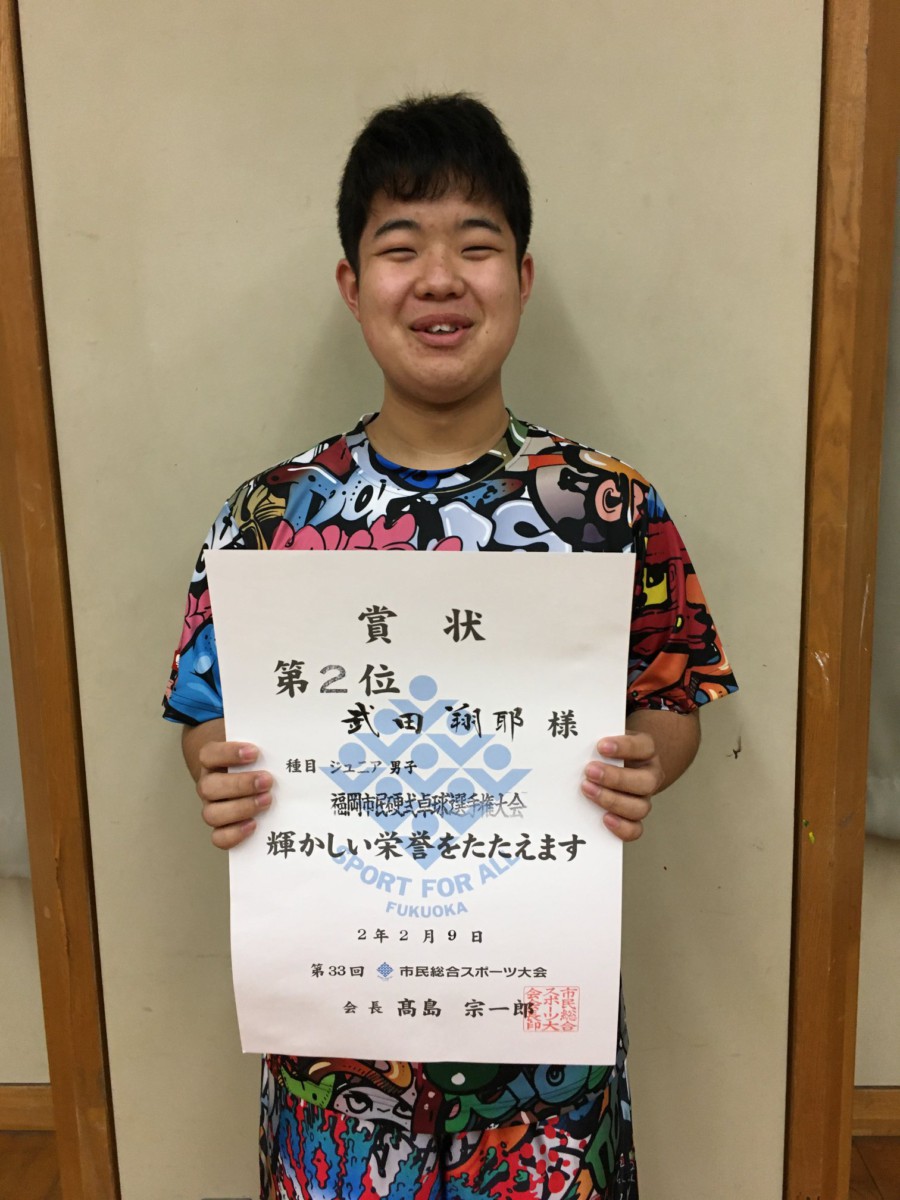 賞 状
第2位
武田 翔耶 様
種目 ジュニア 男子
福岡市民硬式卓球選手権大会
輝かしい栄誉をたたえます
SPORT FOR ALL
FUKUOKA
2年2月9日
第33回 市民総合スポーツ大会
会長 髙島 宗一郎
市民総合
スポーツ大
会会長印